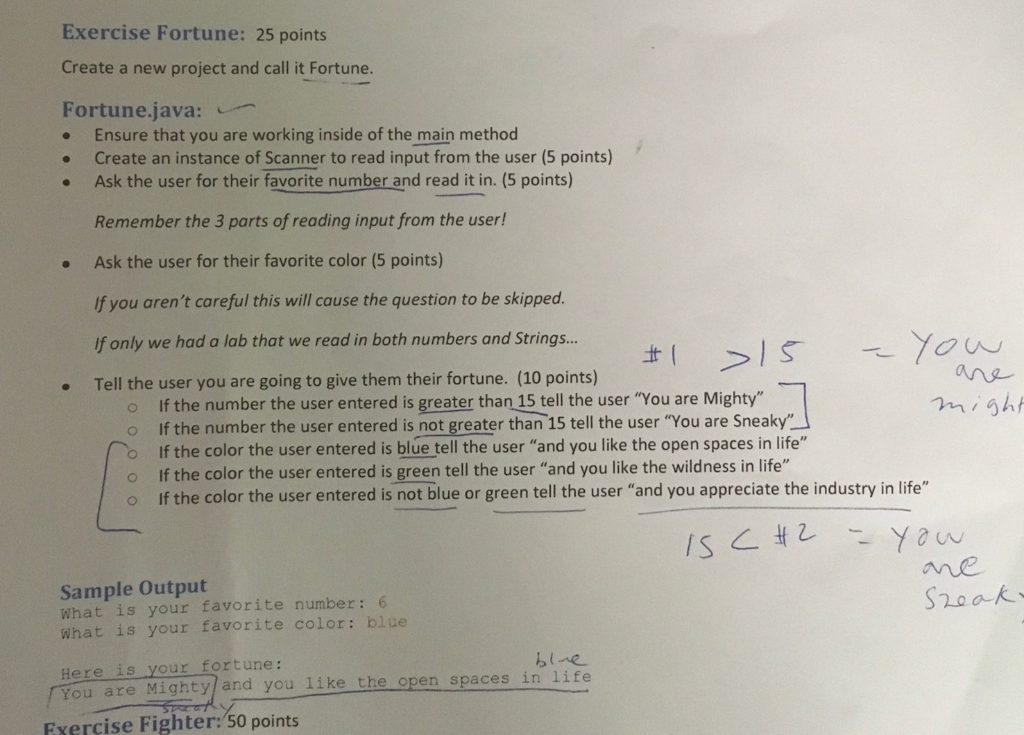 Exercise Fortune: 25 points
Create a new project and call it Fortune.
Fortune.java:
• Ensure that you are working inside of the main method
• Create an instance of Scanner to read input from the user (5 points)
• Ask the user for their favorite number and read it in. (5 points)
Remember the 3 parts of reading input from the user!
• Ask the user for their favorite color (5 points)
If you aren't careful this will cause the question to be skipped.
If only we had a lab that we read in both numbers and Strings...
#1 >15 = You
are
might
• Tell the user you are going to give them their fortune. (10 points)
o If the number the user entered is greater than 15 tell the user "You are Mighty"
o If the number the user entered is not greater than 15 tell the user "You are Sneaky"
o If the color the user entered is blue tell the user "and you like the open spaces in life"
o If the color the user entered is green tell the user "and you like the wildness in life"
o If the color the user entered is not blue or green tell the user "and you appreciate the industry in life"
15 < #2 = you
are
Sneaky
Sample Output
What is your favorite number: 6
What is your favorite color: blue
Here is your fortune:
blue
You are Mighty and you like the open spaces in life
sneaky
Exercise Fighter: 50 points